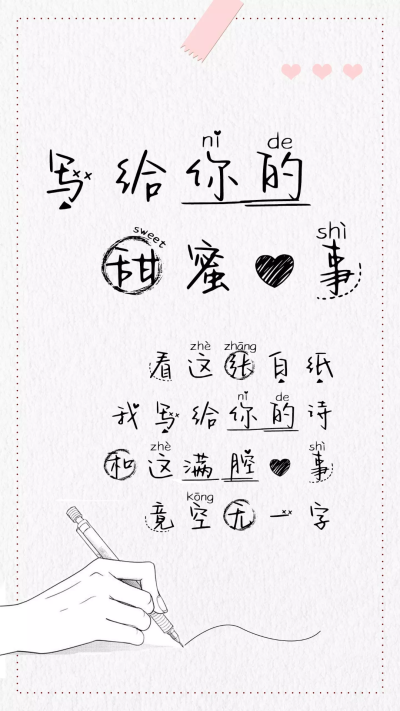 nǐ de
写给你的
sweet shì
甜蜜事
zhè zhāng
看这张白纸
nǐ de
我写给你的诗
zhè shì
和这满腔事
kōng
竟空无一字